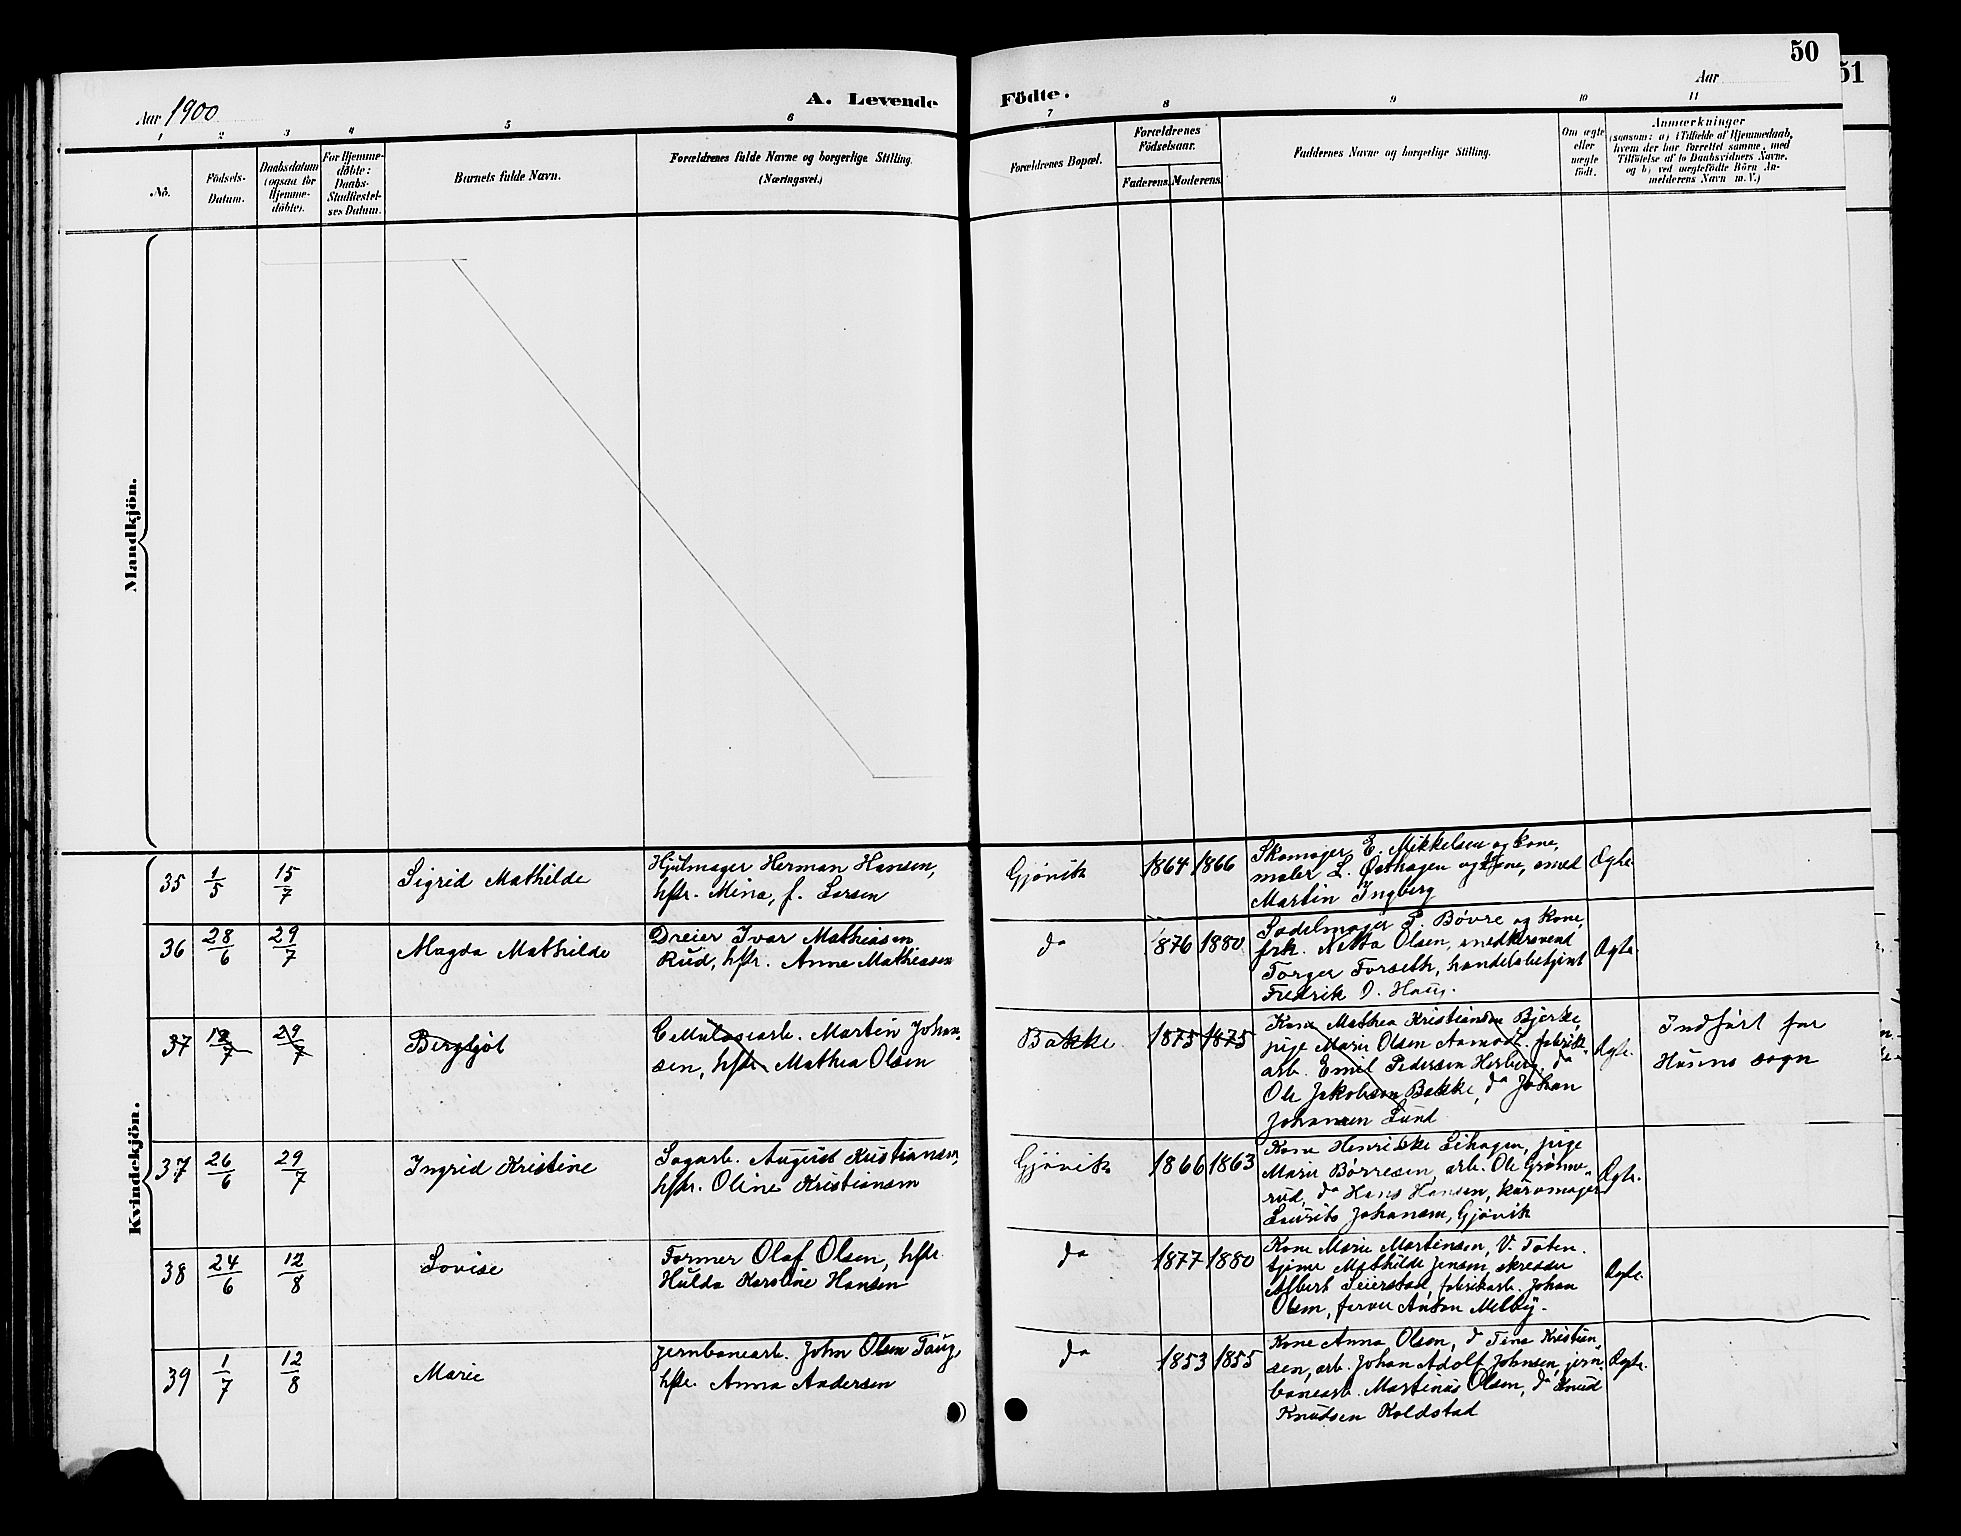 50
51
Aar 1900
A. Levende Födte.
Aar
1 2 3 4 5 6 7 8 9 10 11
No.
Födsels-
Datum.
Daabsdatum
(ogsaa for
Hjemme-
döbte).
For Hjemme-
döbte:
Daabs-
Stadfæstel-
ses Datum.
Barnets fulde Navn.
Forældrenes fulde Navne og borgerlige Stilling.
(Næringsvei.)
Forældrenes Bopæl.
Forældrenes
Födselsaar.
Faderens.
Moderens.
Faddernes Navne og borgerlige Stilling.
Om ægte
eller
uægte
födt.
Anmærkninger
(saasom: a) i Tilfælde af Hjemmedaab,
hvem der har forrettet samme, med
Tilföielse af to Daabsvidners Navne,
og b) ved uægtefödte Börn An-
melderens Navn m. V.)
Mandkjön.
Kvindekjön.
35
1/5
15/7
Sigrid Mathilde
Hjulmager Herman Hansen,
hstr. Mina, f. Larsen
Gjøvik
1864
1866
Skomager E. Mikkelsen og kone,
maler L. Østhagen og kone, smed
Martin Ingberg
Ægte
36
28/6
29/7
Magda Mathilde
Dreier Ivar Mathiasen
Rud, hstr. Anna Mathiasen
do
1876
1880
Sadelmager P. Bøvre og kone,
frk. Netta Olsen, snedkersvend
Torger Forseth, handelsbetjent
Fredrik D. Haug.
Ægte.
37
12/7
29/7
Bergljot
Cellulosearb. Martin Johan-
sen, hstr. Mathea Olsen
Bakke
1875
1875
Kone Mathea Kristiansen Bjerke,
pige Marie Olsen Aamodt, fabrik-
arb. Emil Pedersen Herberg, do
Ole Jakobsen Bakke, do Johan
Johansen Lund
Ægte.
Indført for
Hunns sogn
37
26/6
29/7
Ingrid Kristine
Sagarb. August Kristiansen,
hstr. Oline Kristiansen
Gjøvik
1866
1863
Kone Henrikke Lihagen, pige
Marie Børresen, arb. Ole Grønne-
rud, do Hans Hansen, kurvmager
Laurits Johansen, Gjøvik
Ægte.
38
24/6
12/8
Lovise
Former Olaf Olsen, hstr.
Hulda Karoline Hansen
do
1877
1880
Kone Marie Martinsen, V. Toten.
tjener Mathilde Jensen, skrædder
Albert Seierstad, fabrikarb. Johan
Olsen, farver Anton Melby.
Ægte.
39
1/7
12/8
Marie
Jernbanearb. John Olsen Taug,
hstr. Anna Andersen
do
1853
1855
Kone Anna Olsen, do Tina Kristian-
sen, arb. Johan Adolf Johnsen, jern-
banearb. Martinus Olsen, do Knud
Knudsen Koldstad
Ægte.